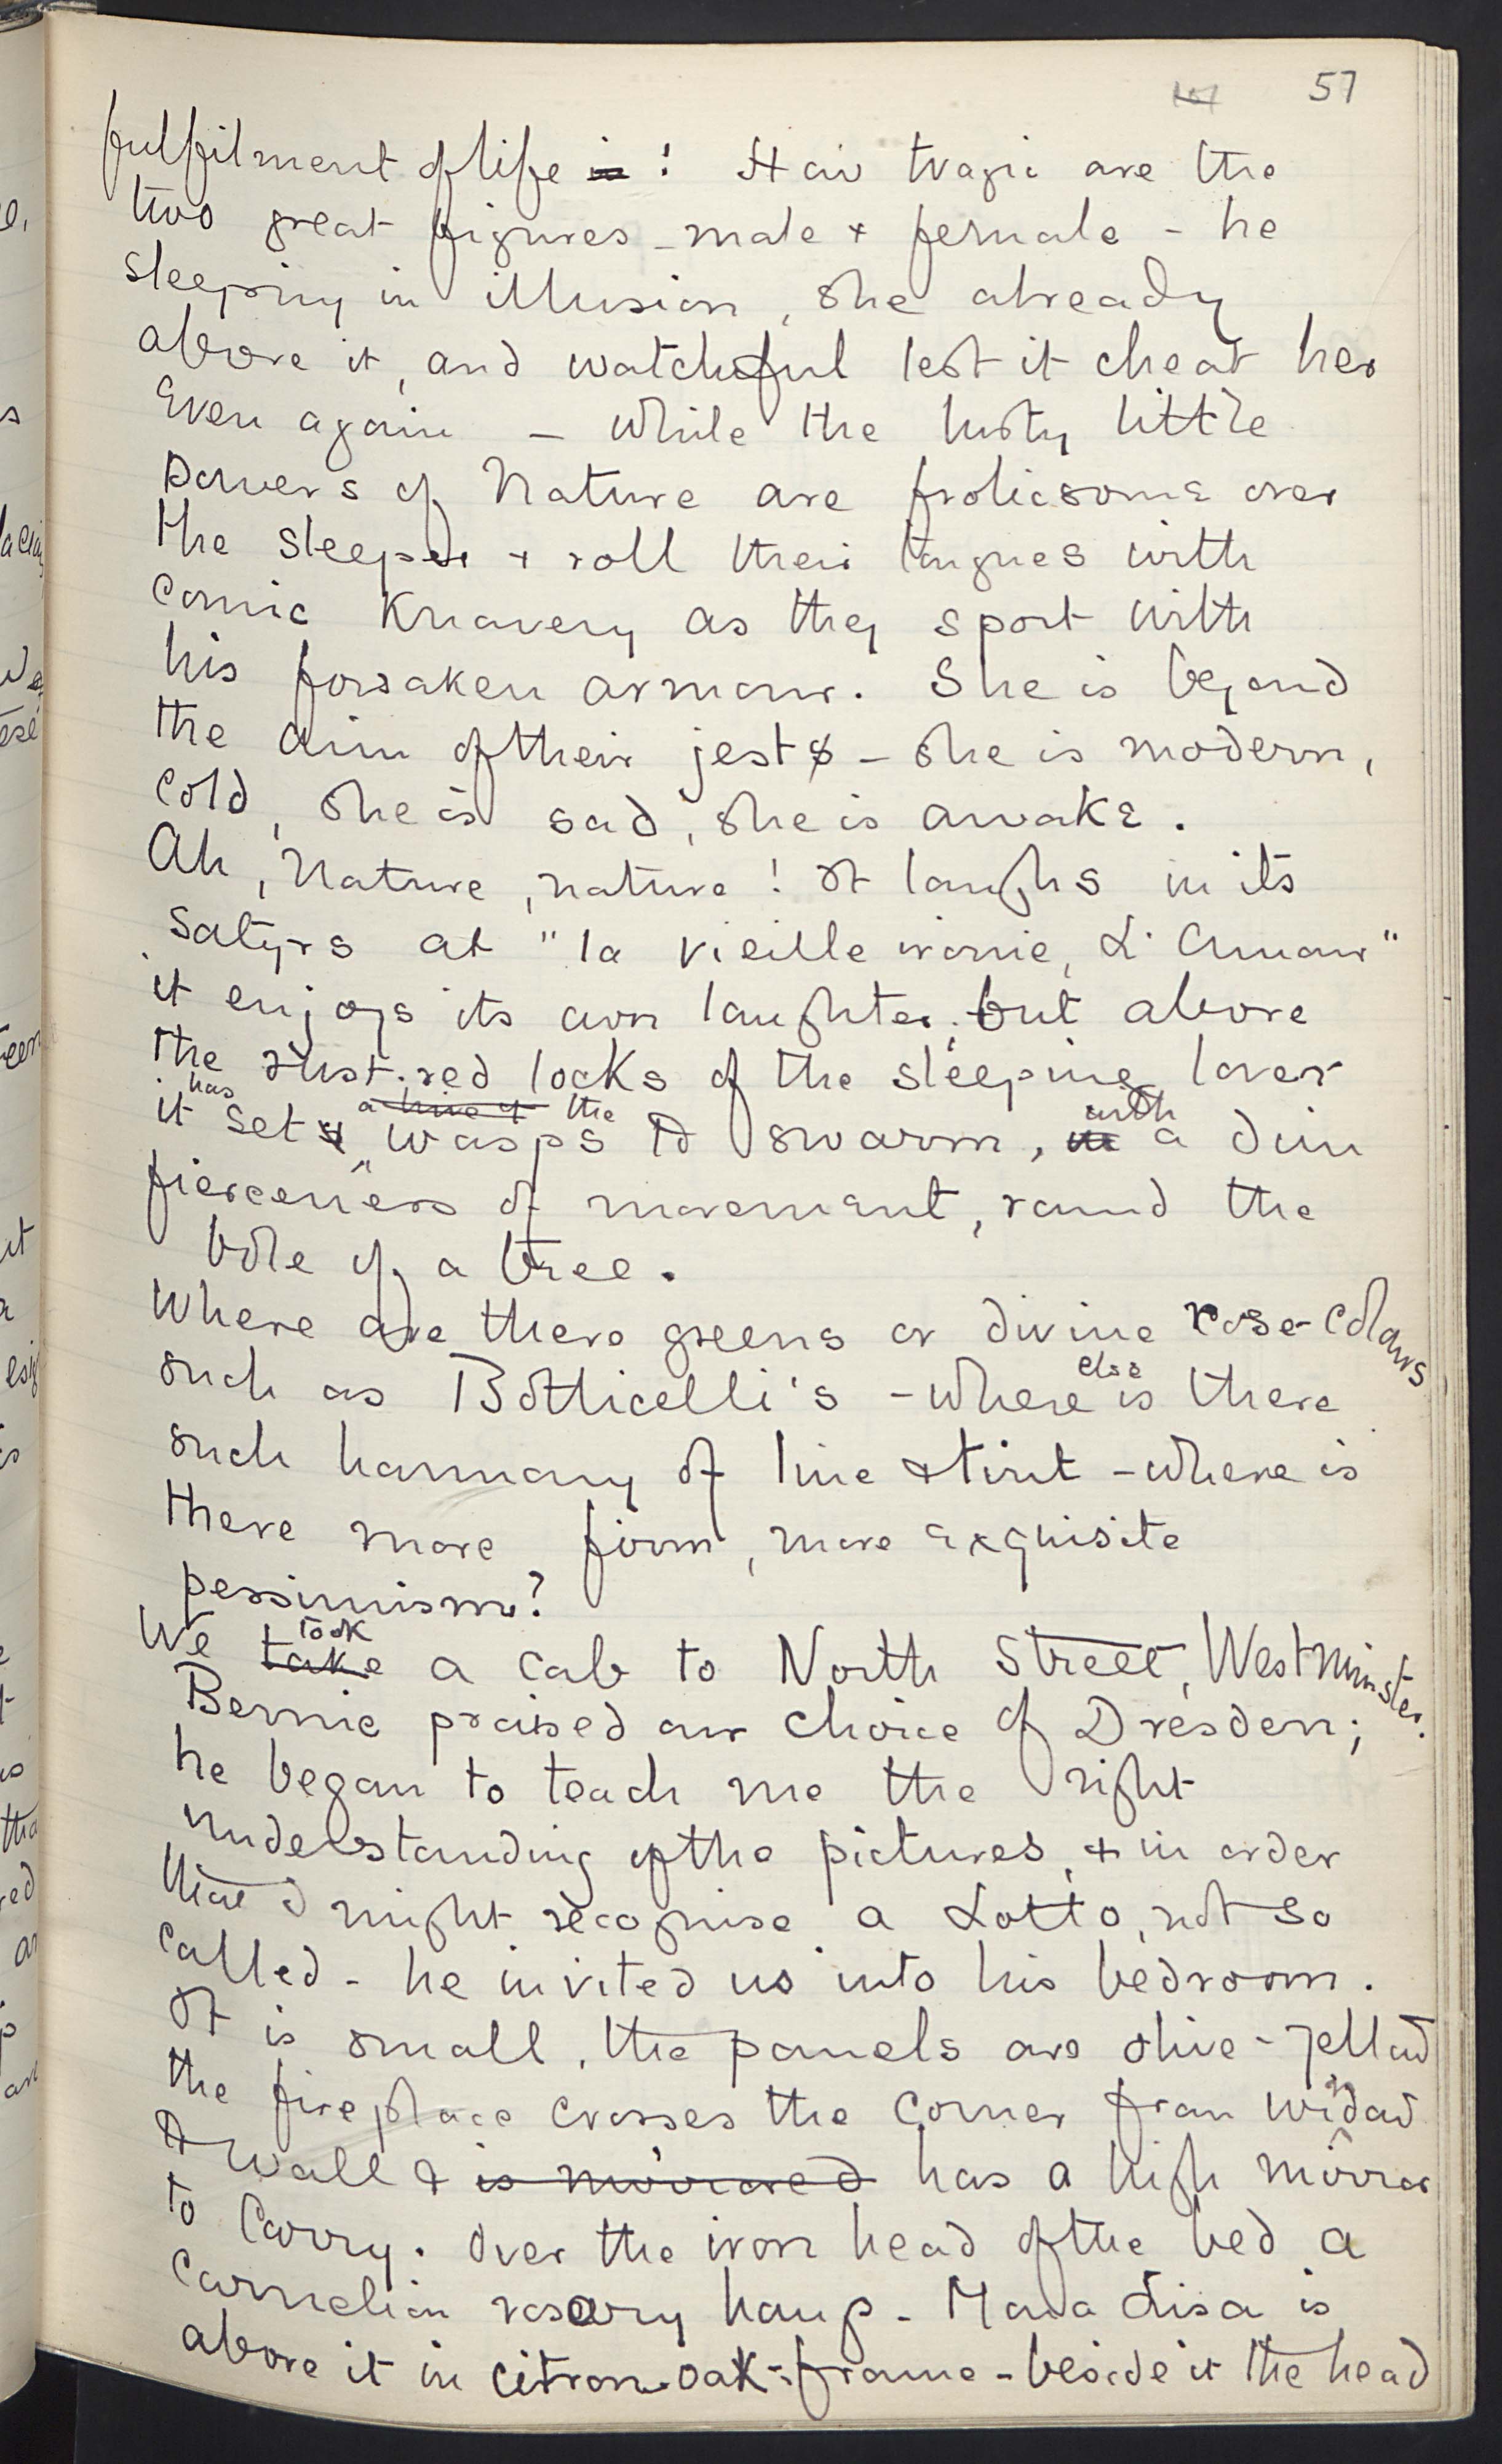 57
fulfilment of life is! How tragic are the
two great figures - male + female - he
sleeping in illusion, she already
above it, and watchful lest it cheat her
even again - while the lusty little
powers of Nature are frolicsome over
the sleeper + roll their tongues with
comic knavery as they sport with
his forsaken armour. She is beyond
the aim of their jests - she is modern,
cold, she is sad, she is awake.
Ah, Nature, nature! It laughs in its
satyrs at "la vieille ironie, L'Amour"
it enjoys its own laughter; but above
the rust-red locks of the sleeping lover
has a hive of the with
it sets wasps to swarm, in a dim
fierceness of movement, round the
bole of a tree.
Where are there greens or divine rose-colours
else
such as Botticelli's - where is there
such harmony of line + tint - where is
there more firm, more exquisite
pessimism?
took
We take a cab to North Street, Westminster.
Bernie praised our choice of Dresden;
he began to teach me the right
understanding of the pictures, + in order
that I might recognise a Lotto, not so
called - he invited us into his bedroom.
It is small, the panels are olive-yellow
the fireplace crosses the corner from window
to wall + is mirrored has a high mirror
to carry. Over the iron head of the bed a
carnelian rosary hangs - Mona Lisa is
above it in citron-oak-frame - beside it the head